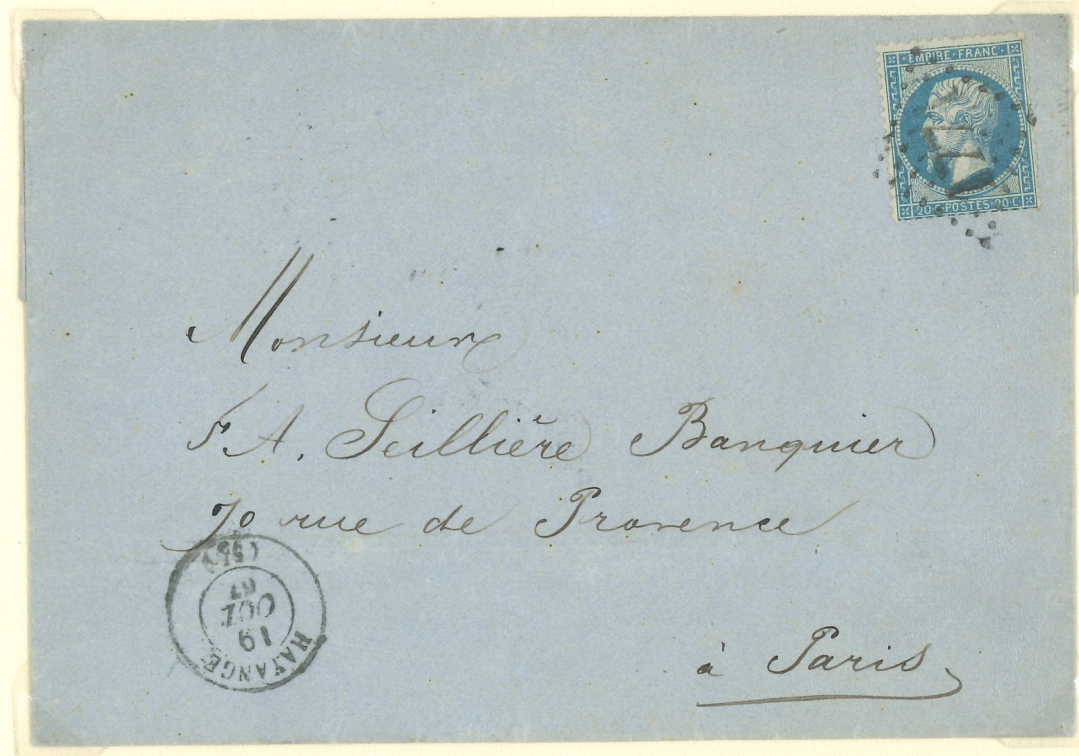 EMPIRE · FRANC ·
20·C POSTES·20·C
Monsieur
F A. Seillière Banquier
70 rue de Provence
à Paris
HAYANGE
19
OCT
67